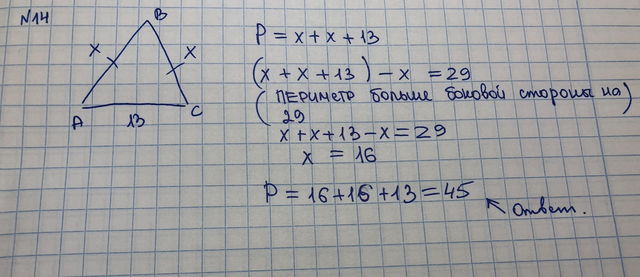 N14
B
x
x
A
13
C
P = x + x + 13
(x + x + 13) - x = 29
(периметр больше боковой стороны на
29)
x + x + 13 - x = 29
x = 16
P = 16 + 16 + 13 = 45
ответ.